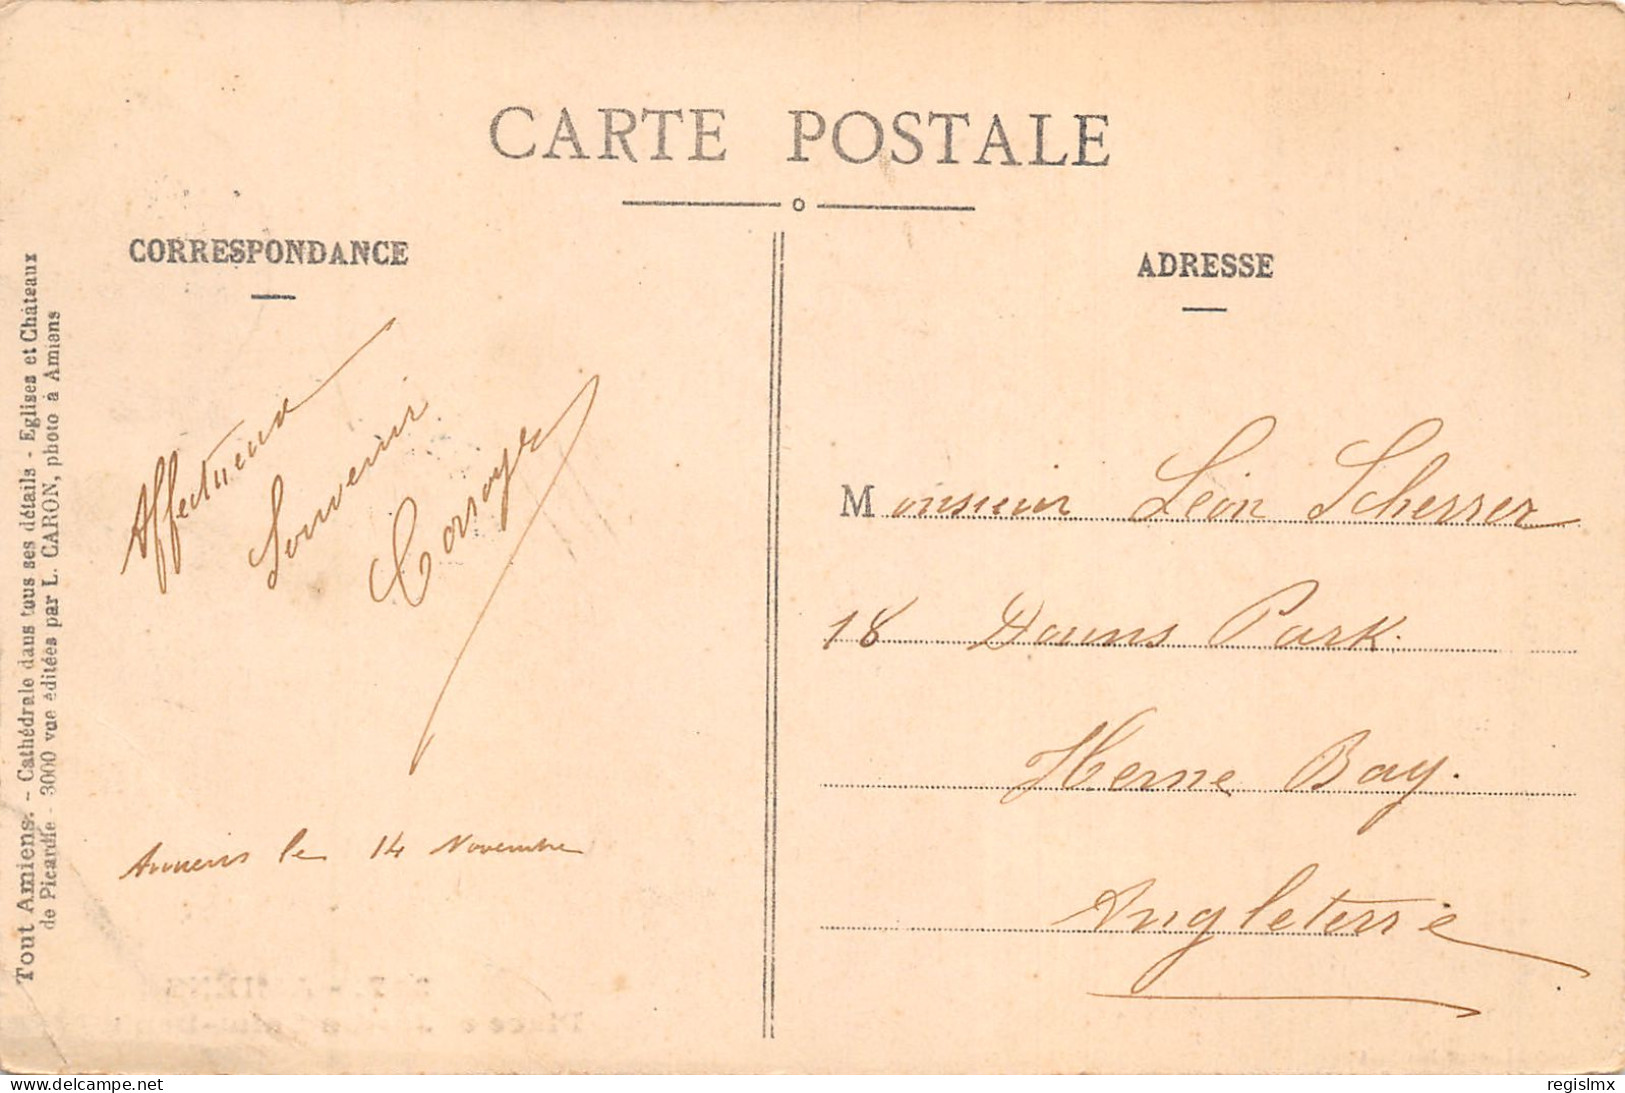 CARTE POSTALE
CORRESPONDANCE
ADRESSE
Tout Amiens. - Cathédrale dans tous ses détails - Eglises et Châteaux
de Picardie - 3000 vue éditées par L. CARON, photo à Amiens
Affectueux
Souvenir
Amiens le 14 Novembre
Monsieur Léon Scherrer
18 Downs Park.
Herne Bay.
Angleterre
delcampe.net
regislmx